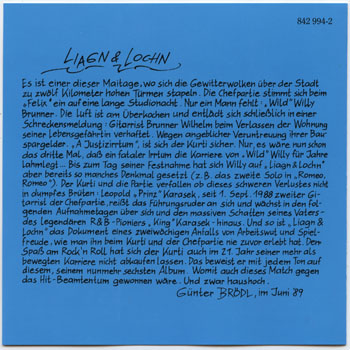 842 994-2
LIAGN & LOCHN
Es ist einer dieser Maitage, wo sich die Gewitterwolken über der Stadt
zu zwölf Kilometer hohen Türmen stapeln. Die Chefpartie stimmt sich beim
"Felix" ein auf eine lange Studionacht. Nur ein Mann fehlt: "Wild" Willy
Brunner. Die Luft ist am Überkochen und entlädt sich schließlich in einer
Schreckensmeldung: Gitarrist Brunner Wilhelm beim Verlassen der Wohnung
seiner Lebensgefährtin verhaftet. Wegen angeblicher Veruntreuung ihrer Bau-
spargelder. "A Justizirrtum", ist sich der Kurti sicher. Nur, es wäre nun schon
das dritte Mal, daß ein fataler Irrtum die Karriere von "Wild" Willy für Jahre
lahmlegt. Bis zum Tag seiner Festnahme hat sich Willy auf "Liagn & Lochn"
aber bereits so manches Denkmal gesetzt (z.B. das zweite Solo in "Romeo,
Romeo"). Der Kurti und die Partie verfallen ob dieses schweren Verlustes nicht
in dumpfes Brüten: Leopold "Prinz" Karasek, seit 1. Sept. 1988 zweiter Gi-
tarrist der Chefpartie, reißt das Führungsruder an sich und wächst in den fol-
genden Aufnahmetagen über sich und den massiven Schatten seines Vaters -
des legendären R&B-Pioniers "King" Karasek - hinaus. Und so ist "Liagn &
Lochn" das Dokument eines zweiwöchigen Anfalls von Arbeitswut und Spiel-
freude, wie man ihn beim Kurti und der Chefpartie nie zuvor erlebt hat. Den
Spaß am Rock'n Roll hat sich der Kurti auch im 21. Jahr seiner mehr als
bewegten Karriere nicht abkaufen lassen. Das beweist er mit jedem Ton auf
diesem, seinem nunmehr sechsten Album. Womit auch dieses Match gegen
das Hit-Beamtentum gewonnen wäre. Und zwar haushoch.
Günter BRÖDL, im Juni '89